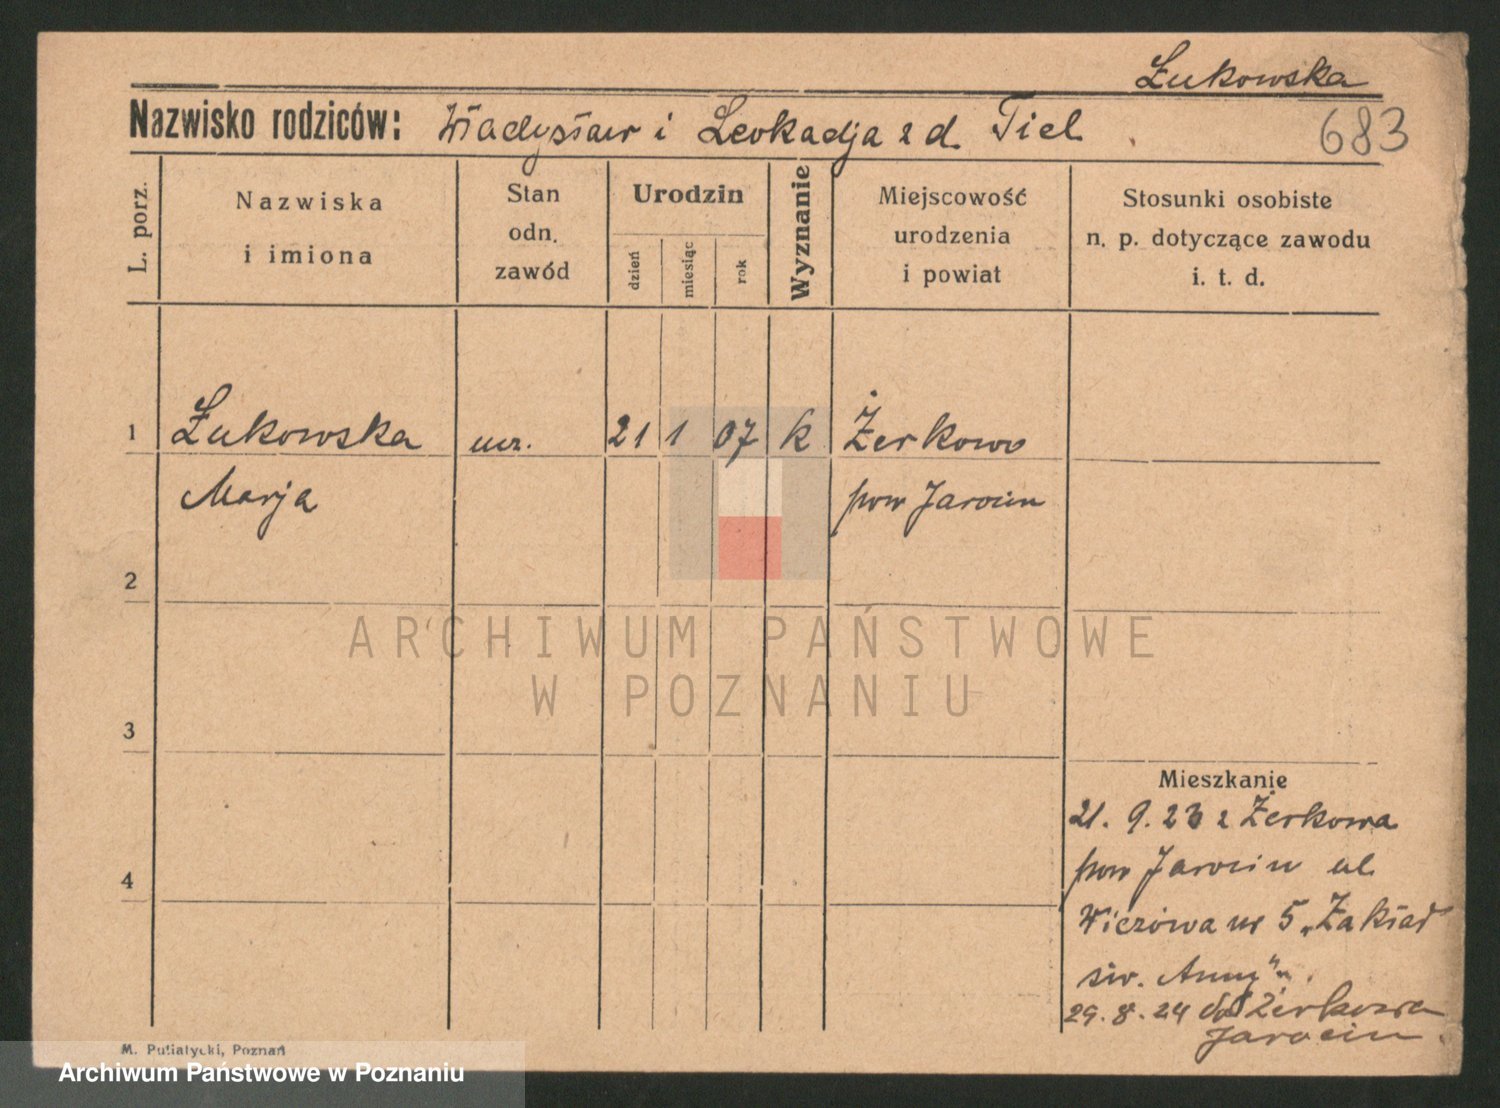 Łukowska
Nazwisko rodziców: Władysław i Leokadja z d. Tiel
683
L. porz.
Nazwiska
i imiona
Stan
odn.
zawód
Urodzin
dzień
miesiąc
rok
Wyznanie
Miejscowość
urodzenia
i powiat
Stosunki osobiste
n. p. dotyczące zawodu
i. t. d.
1 Łukowska ucz. 21 1 07 k Żerkowo
Marja pow Jarocin
2
ARCHIWUM PAŃSTWOWE
W POZNANIU
3
Mieszkanie
21. 9. 23 z Żerkowa
pow Jarocin ul.
4
Wieżowa nr 5 „Zakład
św. Anny"
29. 8. 24 do Żerkowa
Jarocin
M. Putiatycki, Poznań
Archiwum Państwowe w Poznaniu